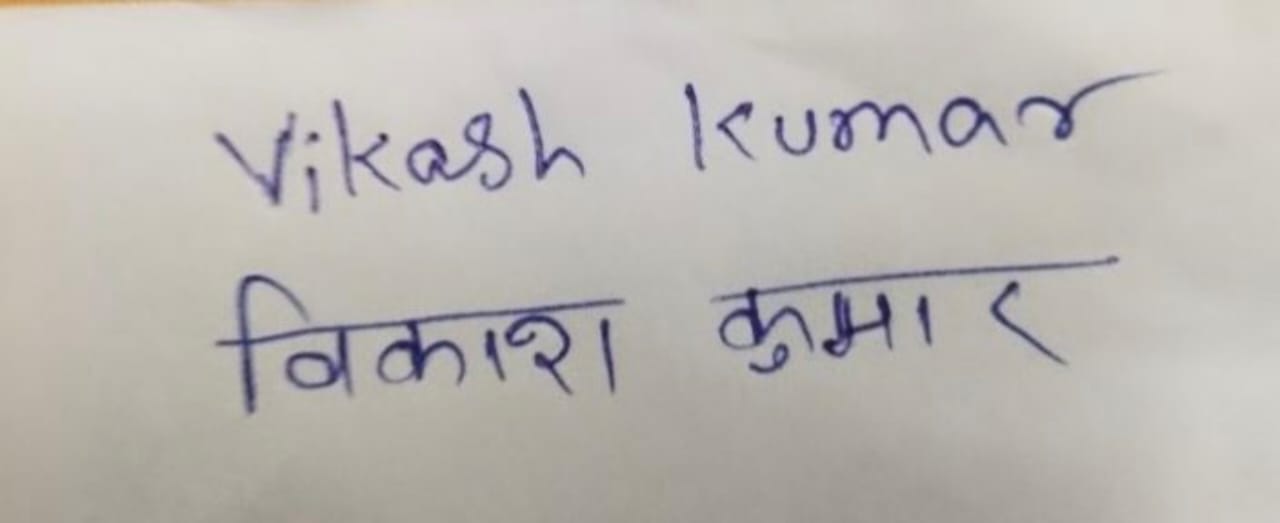 Vikash Kumar
विकाश कुमार